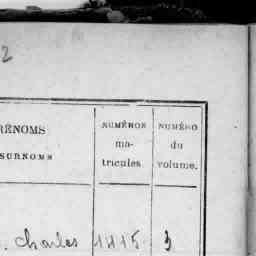 2
RÉNOMS
SURNOMS
NUMÉROS
ma-
tricules.
NUMÉRO
du
volume.
. Charles 1415 3